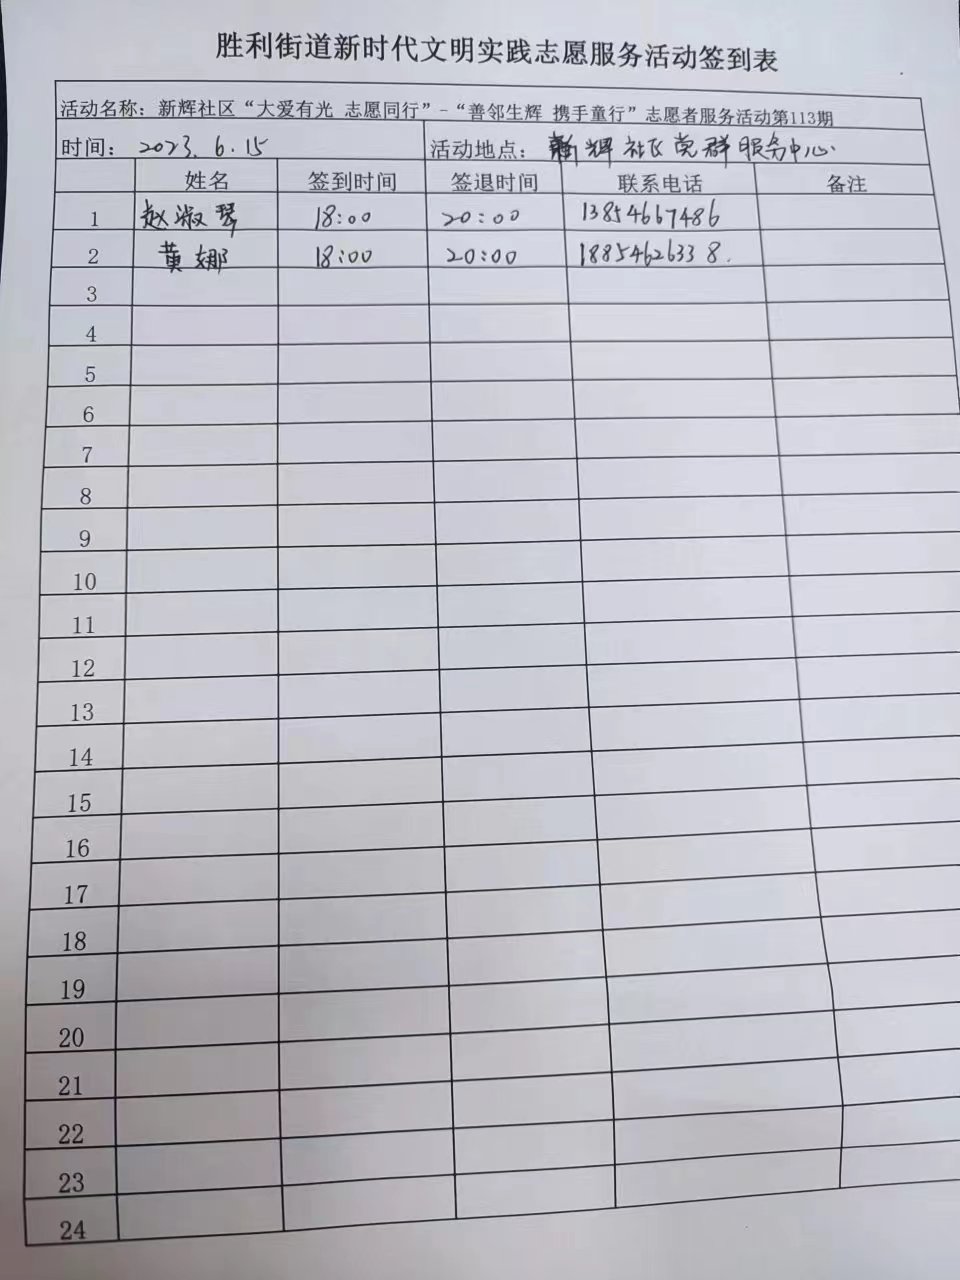 胜利街道新时代文明实践志愿服务活动签到表
活动名称：新辉社区“大爱有光 志愿同行”-“善邻生辉 携手童行”志愿者服务活动第113期
时间： 2023.6.15 活动地点： 新辉社区党群服务中心.
姓名 签到时间 签退时间 联系电话 备注
1 赵淑琴 18:00 20:00 13854667486
2 黄娜 18:00 20:00 18854626338.
3
4
5
6
7
8
9
10
11
12
13
14
15
16
17
18
19
20
21
22
23
24